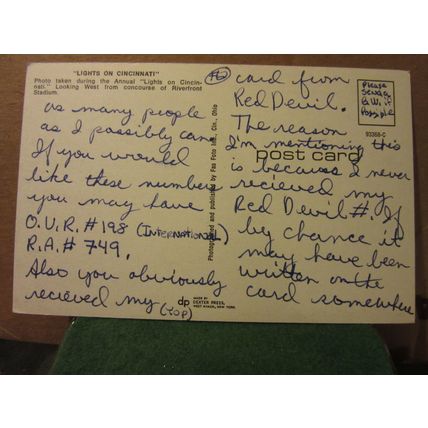 "LIGHTS ON CINCINNATI"
Photo taken during the Annual "Lights on Cincin-
nati." Looking West from concourse of Riverfront
Stadium.
as many people
as I possibly can.
If you would
like these numbers
you may have
O.U.R.#198 (INTERNATIONAL)
R.A.# 749.
Also you obviously
recieved my
(TOP)
Photographed and published by Fas Foto Inc., Cin., Ohio
dp
MADE BY
DEXTER PRESS,
WEST NYACK, NEW YORK
#6
card from
Red Devil.
The reason
I'm mentioning this
is because I never
recieved my
Red Devil #. If
by chance it
may have been
written on the
card somewhere
Please
Send
B.W. if
Possible
93368-C
post card